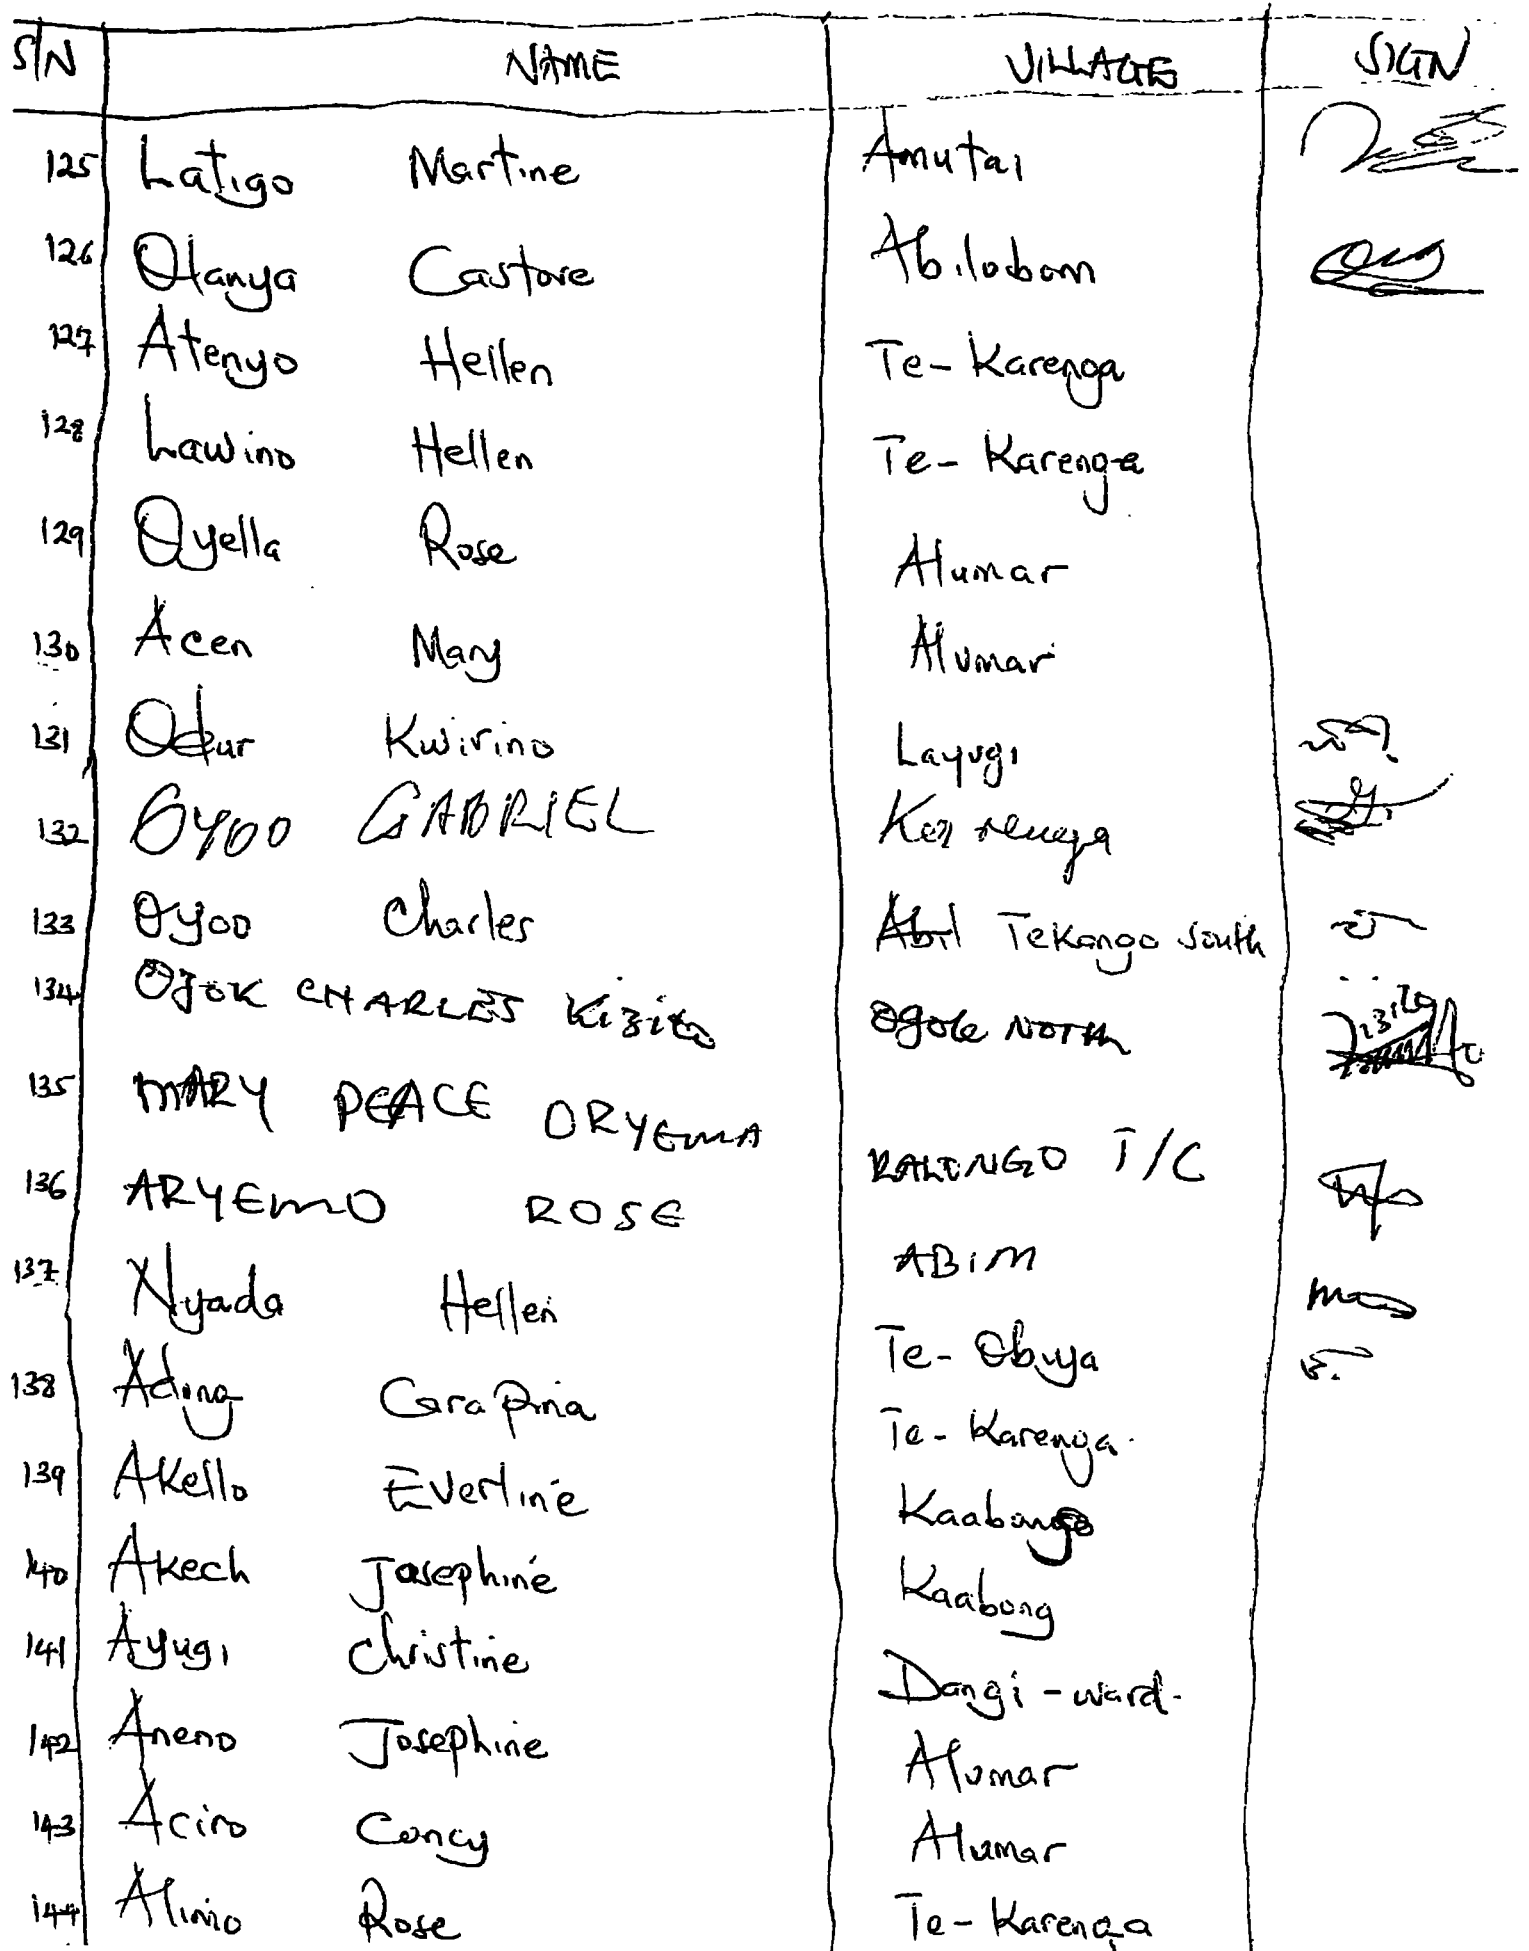 S/N NAME VILLAGE SIGN
125 Latigo Martine Amutai
126 Otanya Castore Abilobom
127 Atenyo Hellen Te-Karenga
128 Lawino Hellen Te-Karenga
129 Oyella Rose Alumar
130 Acen Mary Alumar
131 Odur Kwirino Layugi
132 Oyoo GABRIEL
133 Oyoo Charles Abil Tekongo South
134 OJOK CHARLES Kizito Ogole NORTH
135 MARY PEACE ORYEMA KALONGO T/C
136 ARYEMO ROSE ABIM
137 Nyada Hellen Te-Obuya
138 Ading Cerapina Te-Karenga
139 Akello Everline Kaabong
140 Akech Josephine Kaabong
141 Ayugi Christine Dangi-ward
142 Aneno Josephine Alumar
143 Aciro Concy Alumar
144 Alimo Rose Te-Karenga